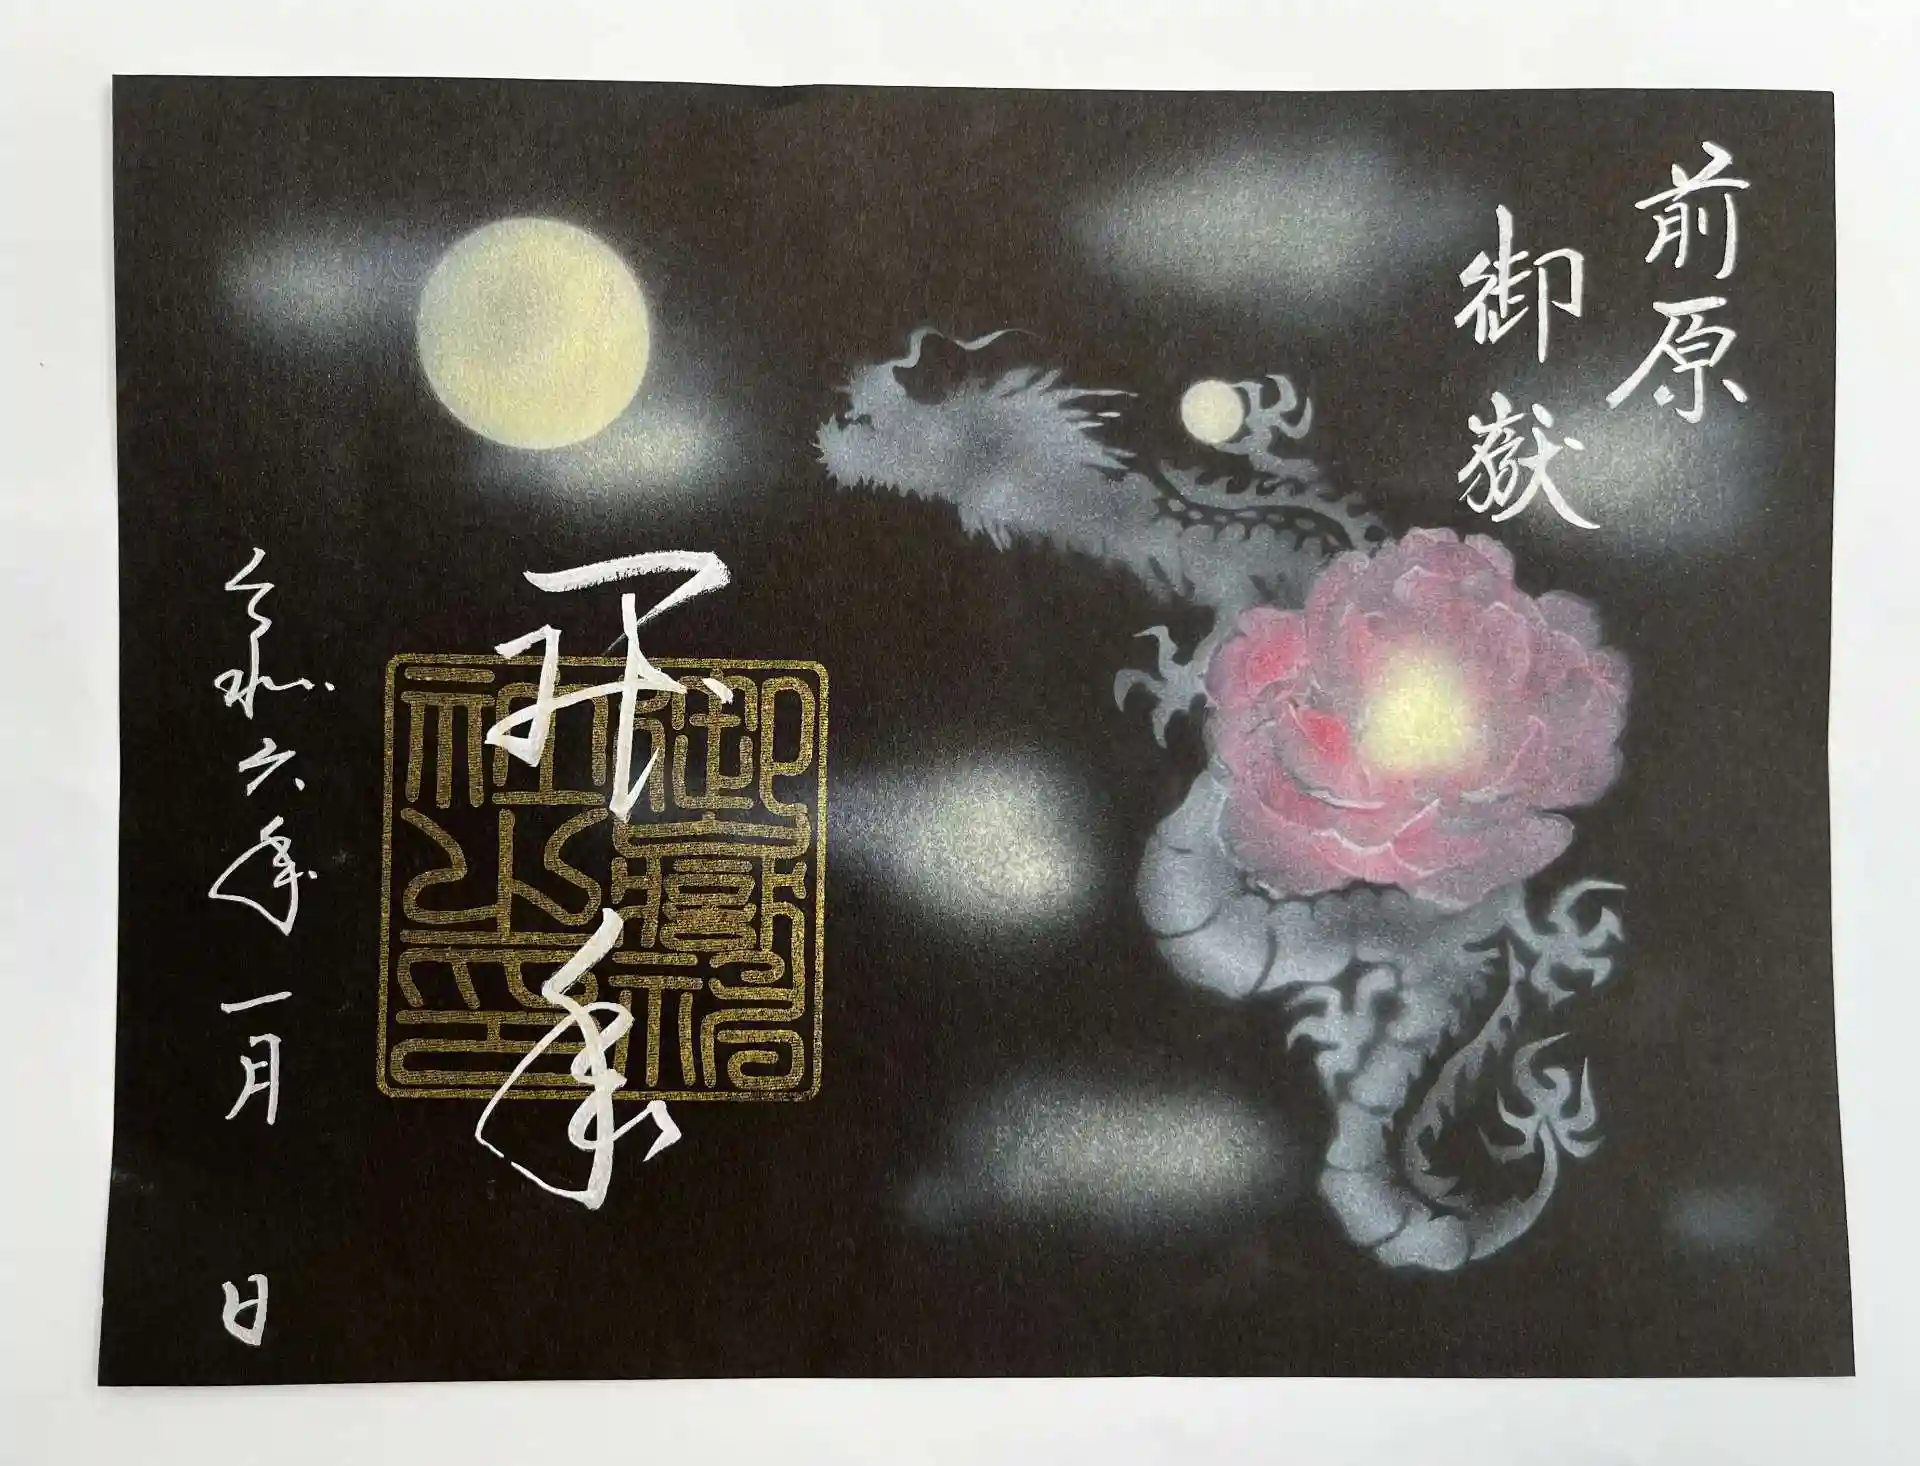 前原
御嶽
御嶽神
社之印
令和六年一月 日